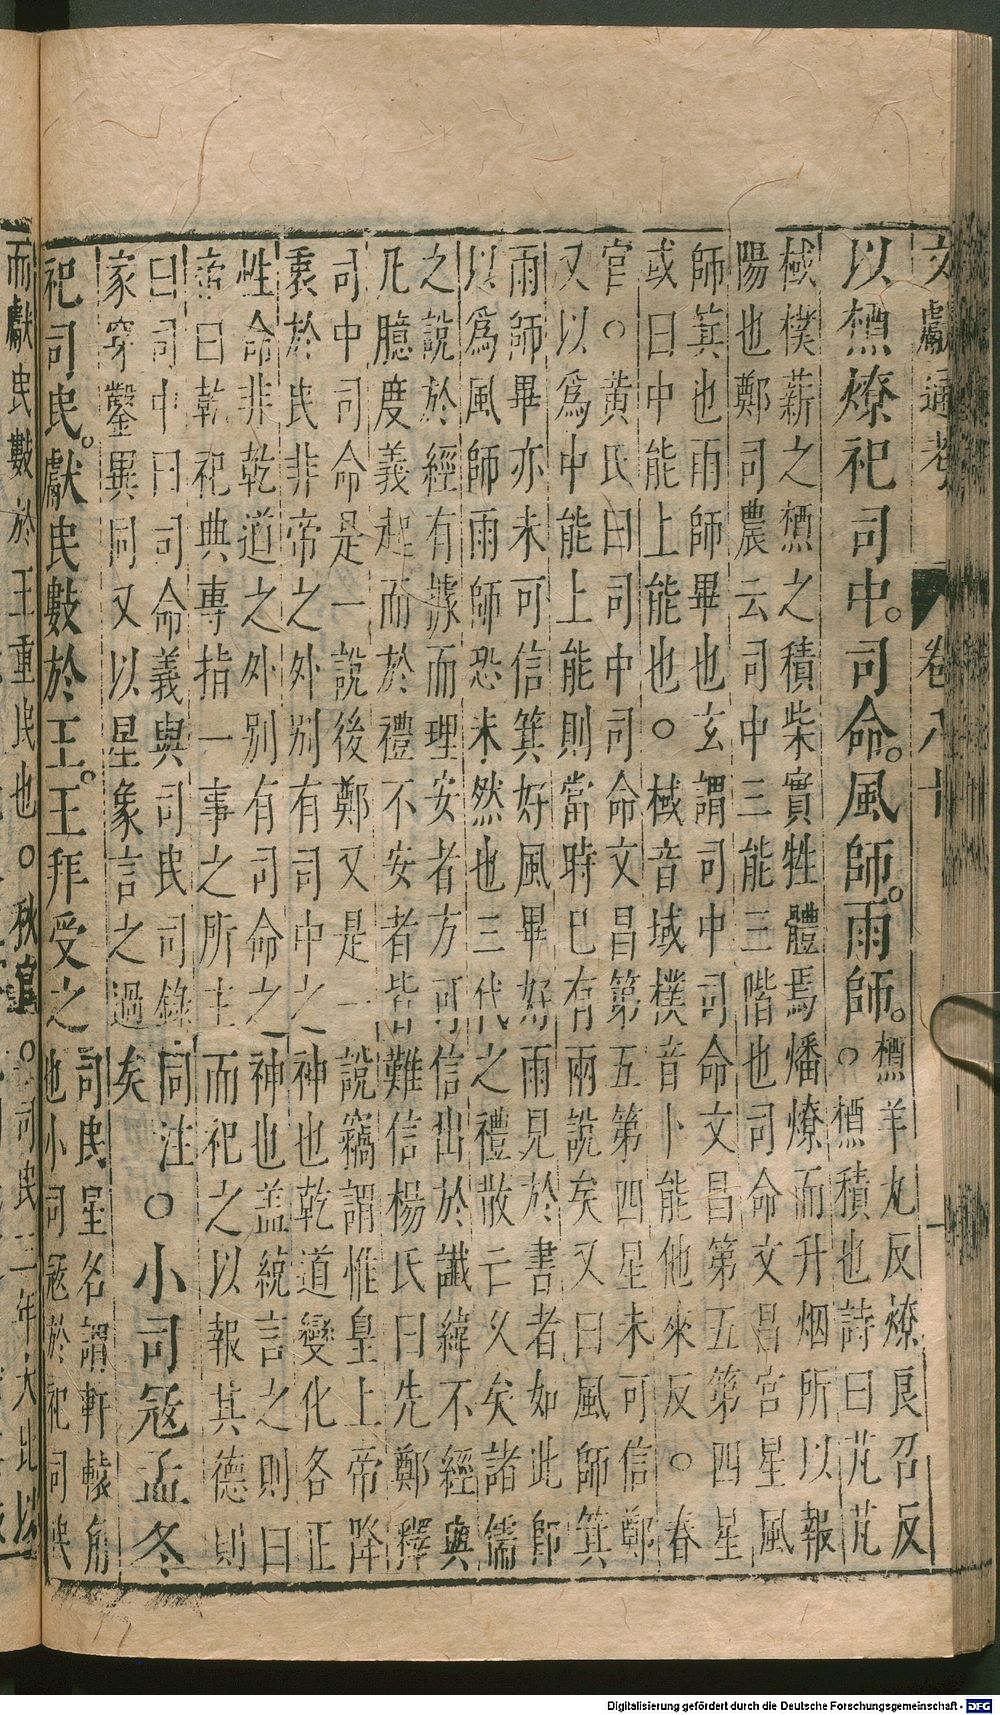 文獻通考 卷八十 一
以槱燎祀司中。司命。風師。雨師。槱羊九反燎良召反
。槱積也詩曰芃芃
棫樸薪之槱之積柴實牲體焉燔燎而升烟所以報
陽也鄭司農云司中三能三階也司命文昌宮星風
師箕也雨師畢也玄謂司中司命文昌第五第四星
或曰中能上能也○棫音域樸音卜能他來反○春
官○黃氏曰司中司命文昌第五第四星未可信鄭
又以爲中能上能則當時已有兩說矣又曰風師箕
雨師畢亦未可信箕好風畢好雨見於書者如此師
以爲風師雨師恐未然也三代之禮散亡久矣諸儒
之說於經有據而理安者方可信出於讖緯不經與
凡臆度義起而於禮不安者皆難信楊氏曰先鄭釋
司中司命是一說後鄭又是一說竊謂惟皇上帝降
衷於民非帝之外別有司中之神也乾道變化各正
性命非乾道之外別有司命之神也蓋統言之則曰
帝曰乾祀典專指一事之所主而祀之以報其德則
曰司中曰司命義與司民司錄同注
家穿鑿異同又以星象言之過矣
○小司寇孟冬
祀司民。獻民數於王。王拜受之司民星名謂軒轅角
也小司寇於祀司民
而獻民數於王重民也○秋官○司民三年大比以
Digitalisierung gefördert durch die Deutsche Forschungsgemeinschaft - DFG